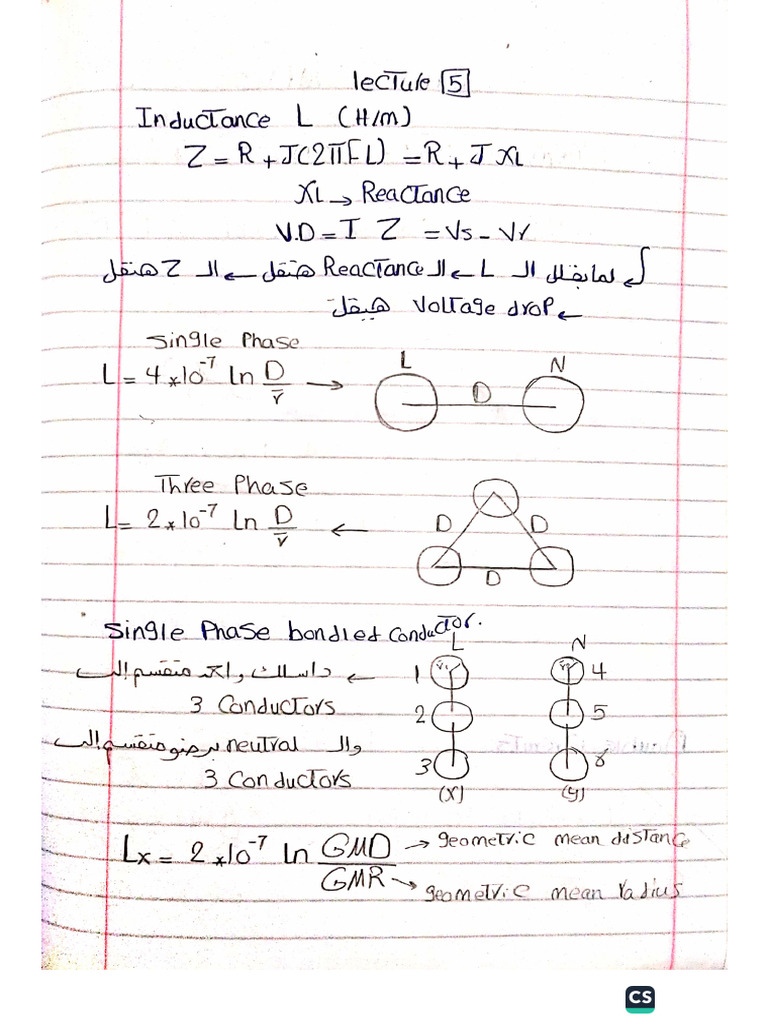 lecture 5
Inductance L (H/m)
Z = R + J(2πfL) = R + J XL
XL → Reactance
V.D = I Z = Vs - Vr
← لما بنقلل ال L ← ال Reactance هتقل ← ال Z هتقل
← voltage drop هيقل
Single Phase
L = 4*10⁻⁷ ln D/r̄ →
L N
D
Three Phase
L = 2*10⁻⁷ ln D/r̄ ←
D D
D
Single Phase bondled conductor.
L N
← دا سلك واحد متقسم إلى
1 4
3 Conductors
2 5
وال neutral برضو متقسم إلى
3 6
3 Conductors
(X) (y)
Lx = 2*10⁻⁷ ln GMD/GMR
→ geometric mean distance
→ geometric mean radius
CS